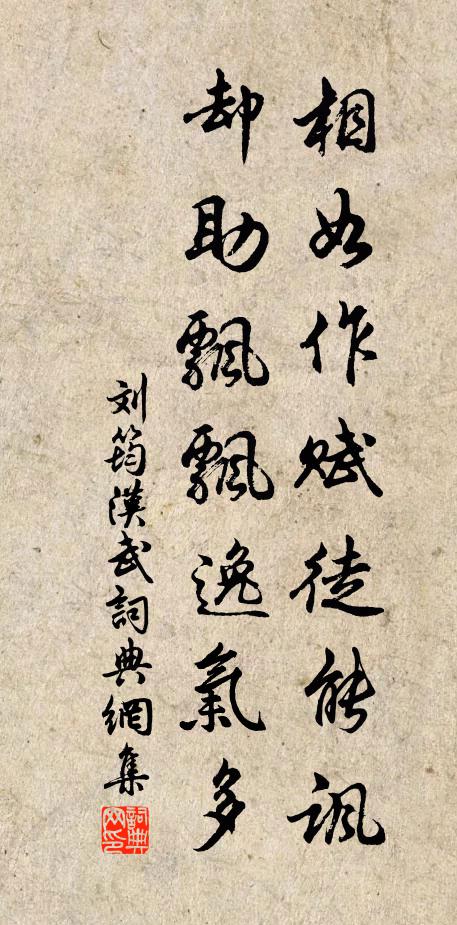 相如作赋徒能讽
却助飘飘逸氣多
刘筠漢武詞典網集
詞典网印